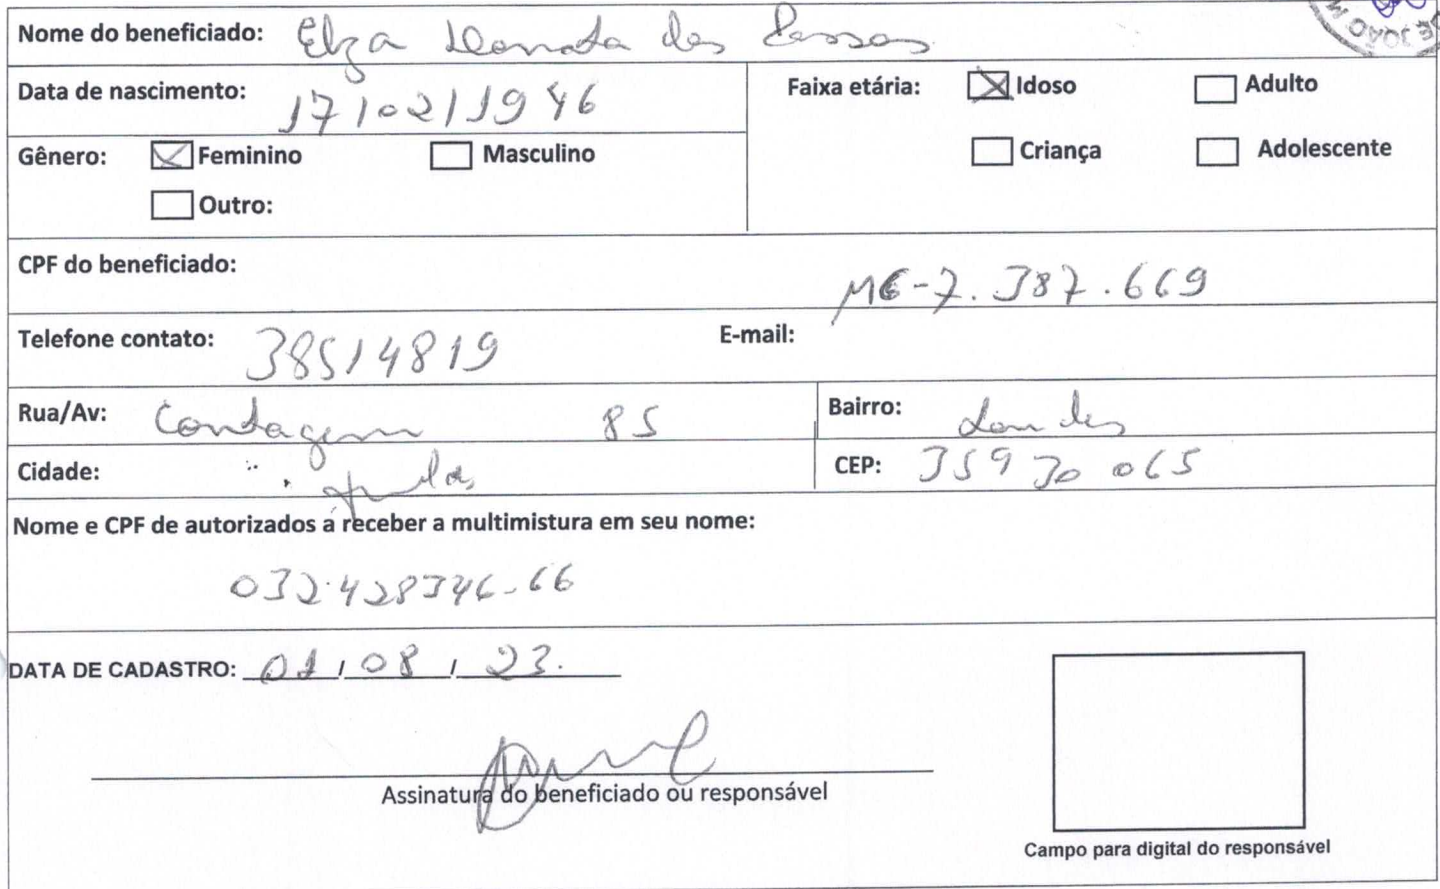 Nome do beneficiado: Elza Donata dos Passos
Data de nascimento: 17/02/1946
Faixa etária: Idoso Adulto
Gênero: Feminino Masculino
Criança Adolescente
Outro:
CPF do beneficiado: MG-7.387.669
Telefone contato: 38514819 E-mail:
Rua/Av: Contagem 85 Bairro: Lourdes
Cidade:
CEP: 35930065
Nome e CPF de autorizados a receber a multimistura em seu nome:
032.428346-66
DATA DE CADASTRO: 01/08/23.
Assinatura do beneficiado ou responsável
Campo para digital do responsável